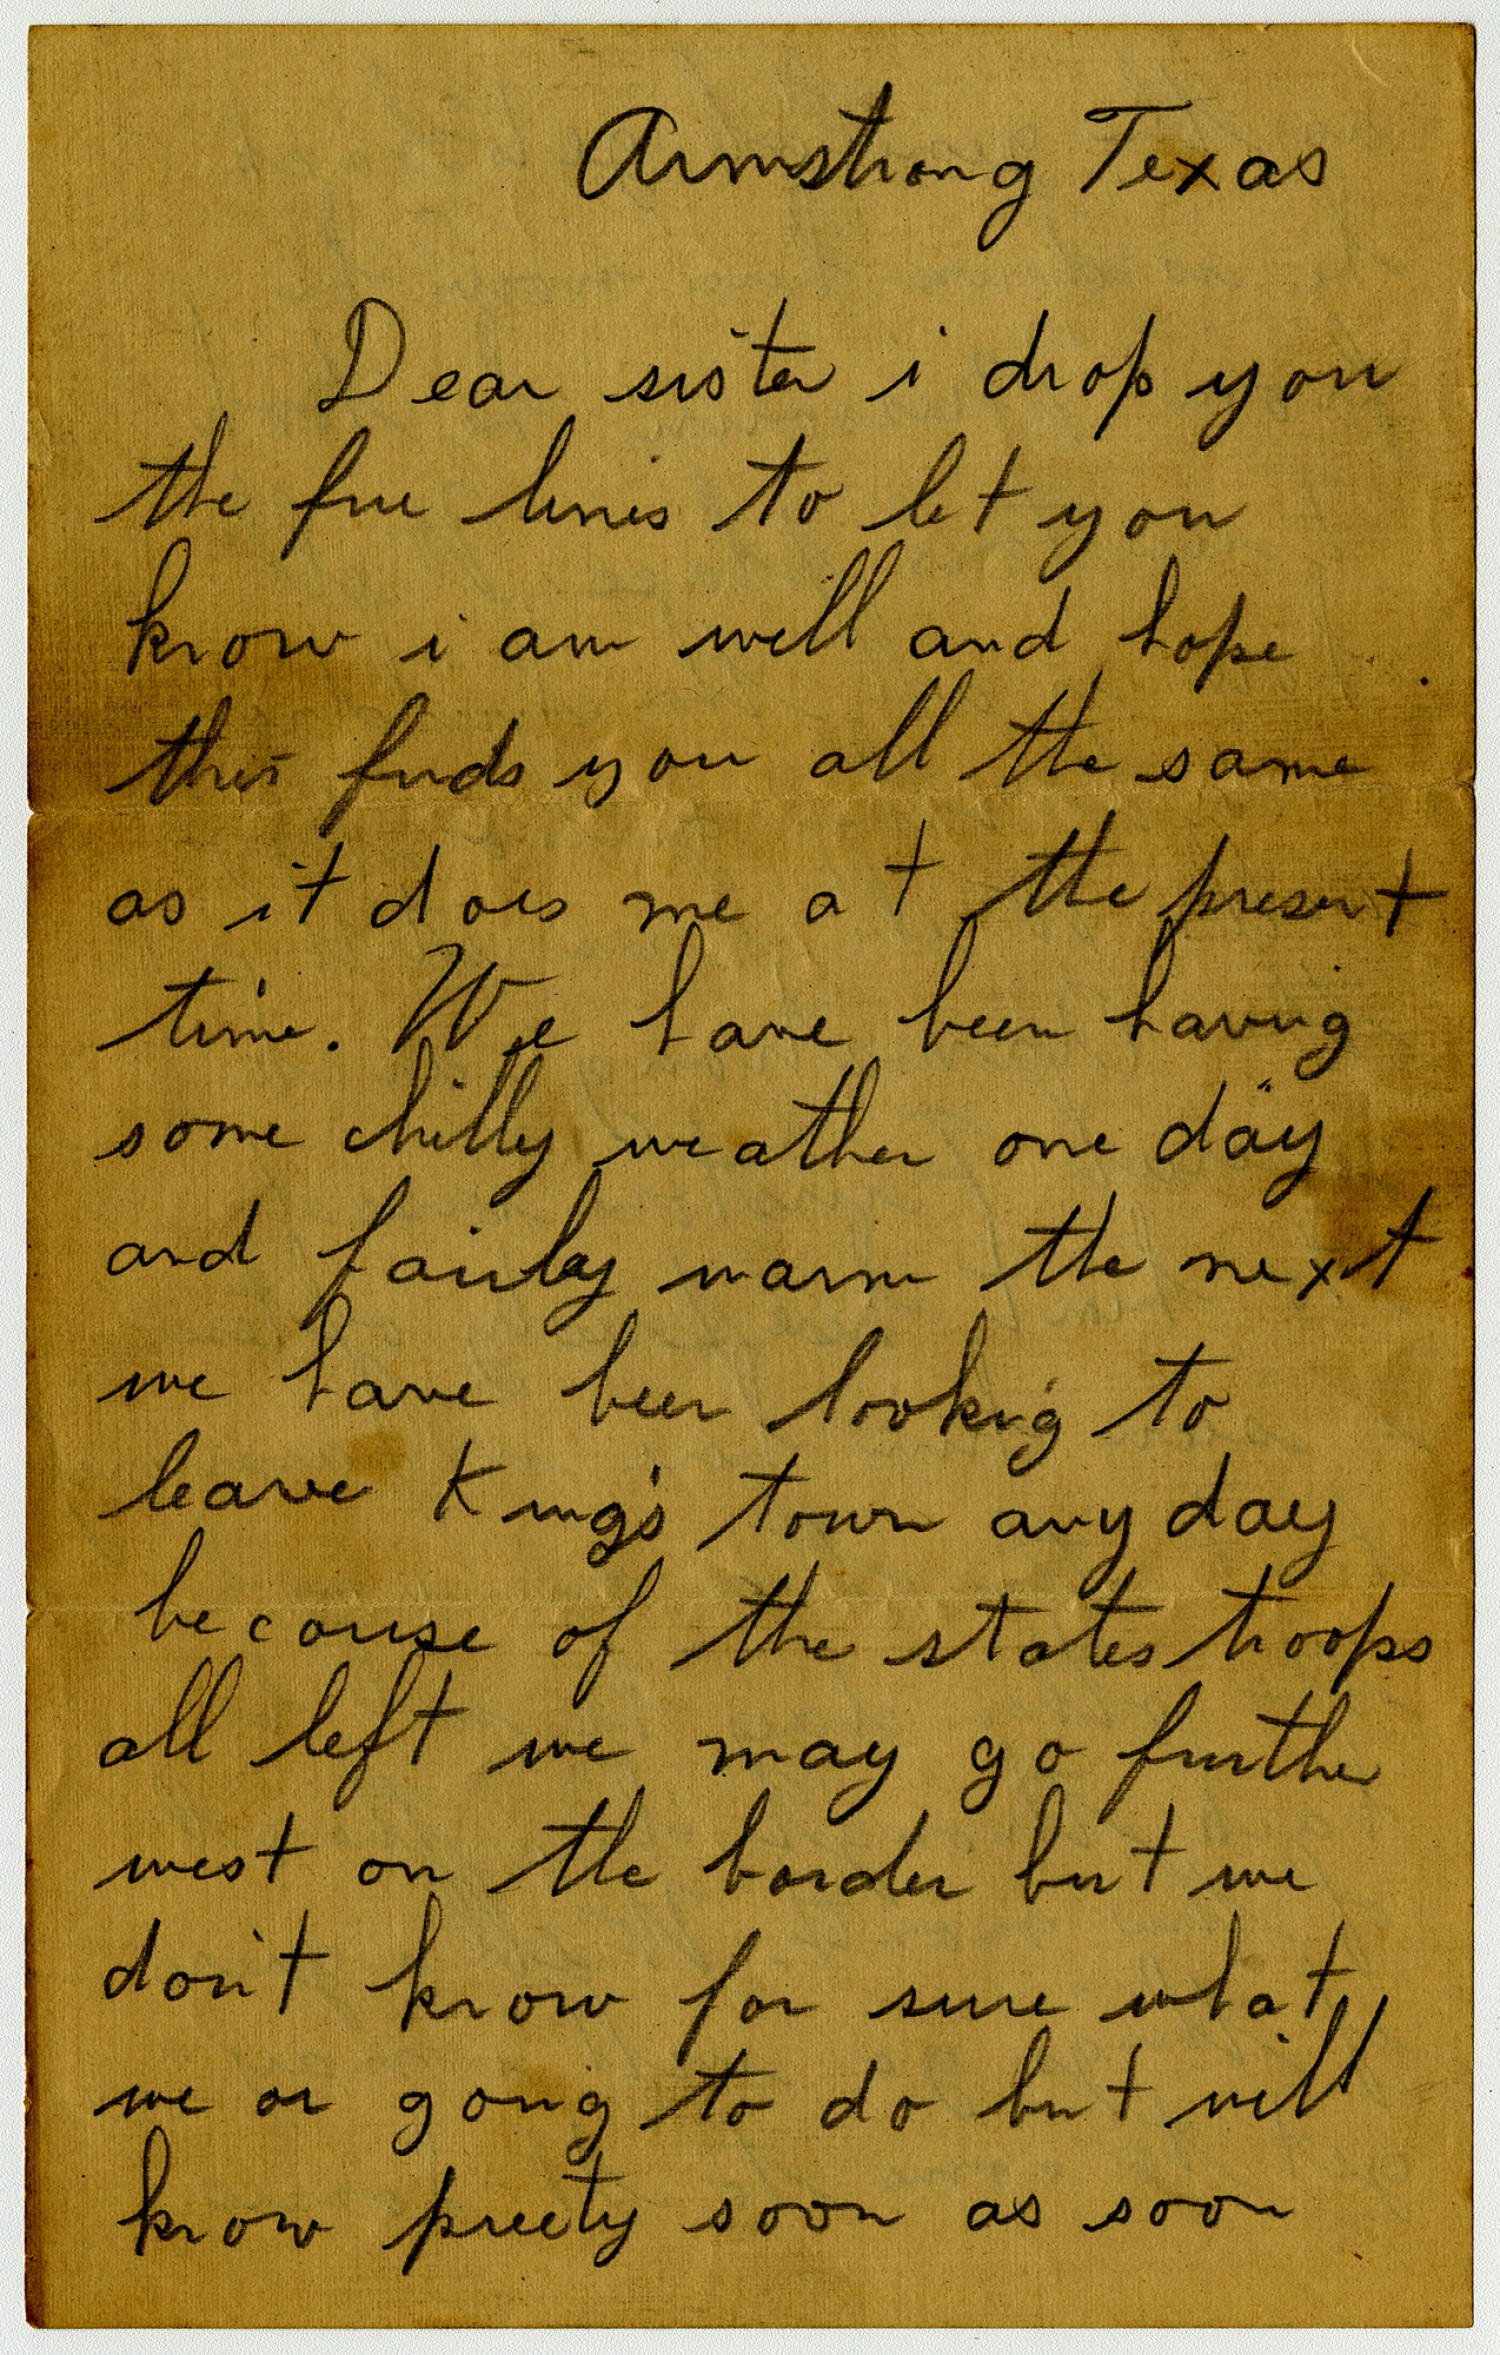 Armstrong Texas
Dear sister i drop you
the fue lines to let you
know i am well and hope
this finds you all the same
as it does me at the present
time. We have been having
some chilly weather one day
and fairley warm the next
we have been looking to
leave King's town any day
because of the states troops
all left we may go further
west on the border but we
don't know for sure what
we or going to do but will
know preety soon as soon